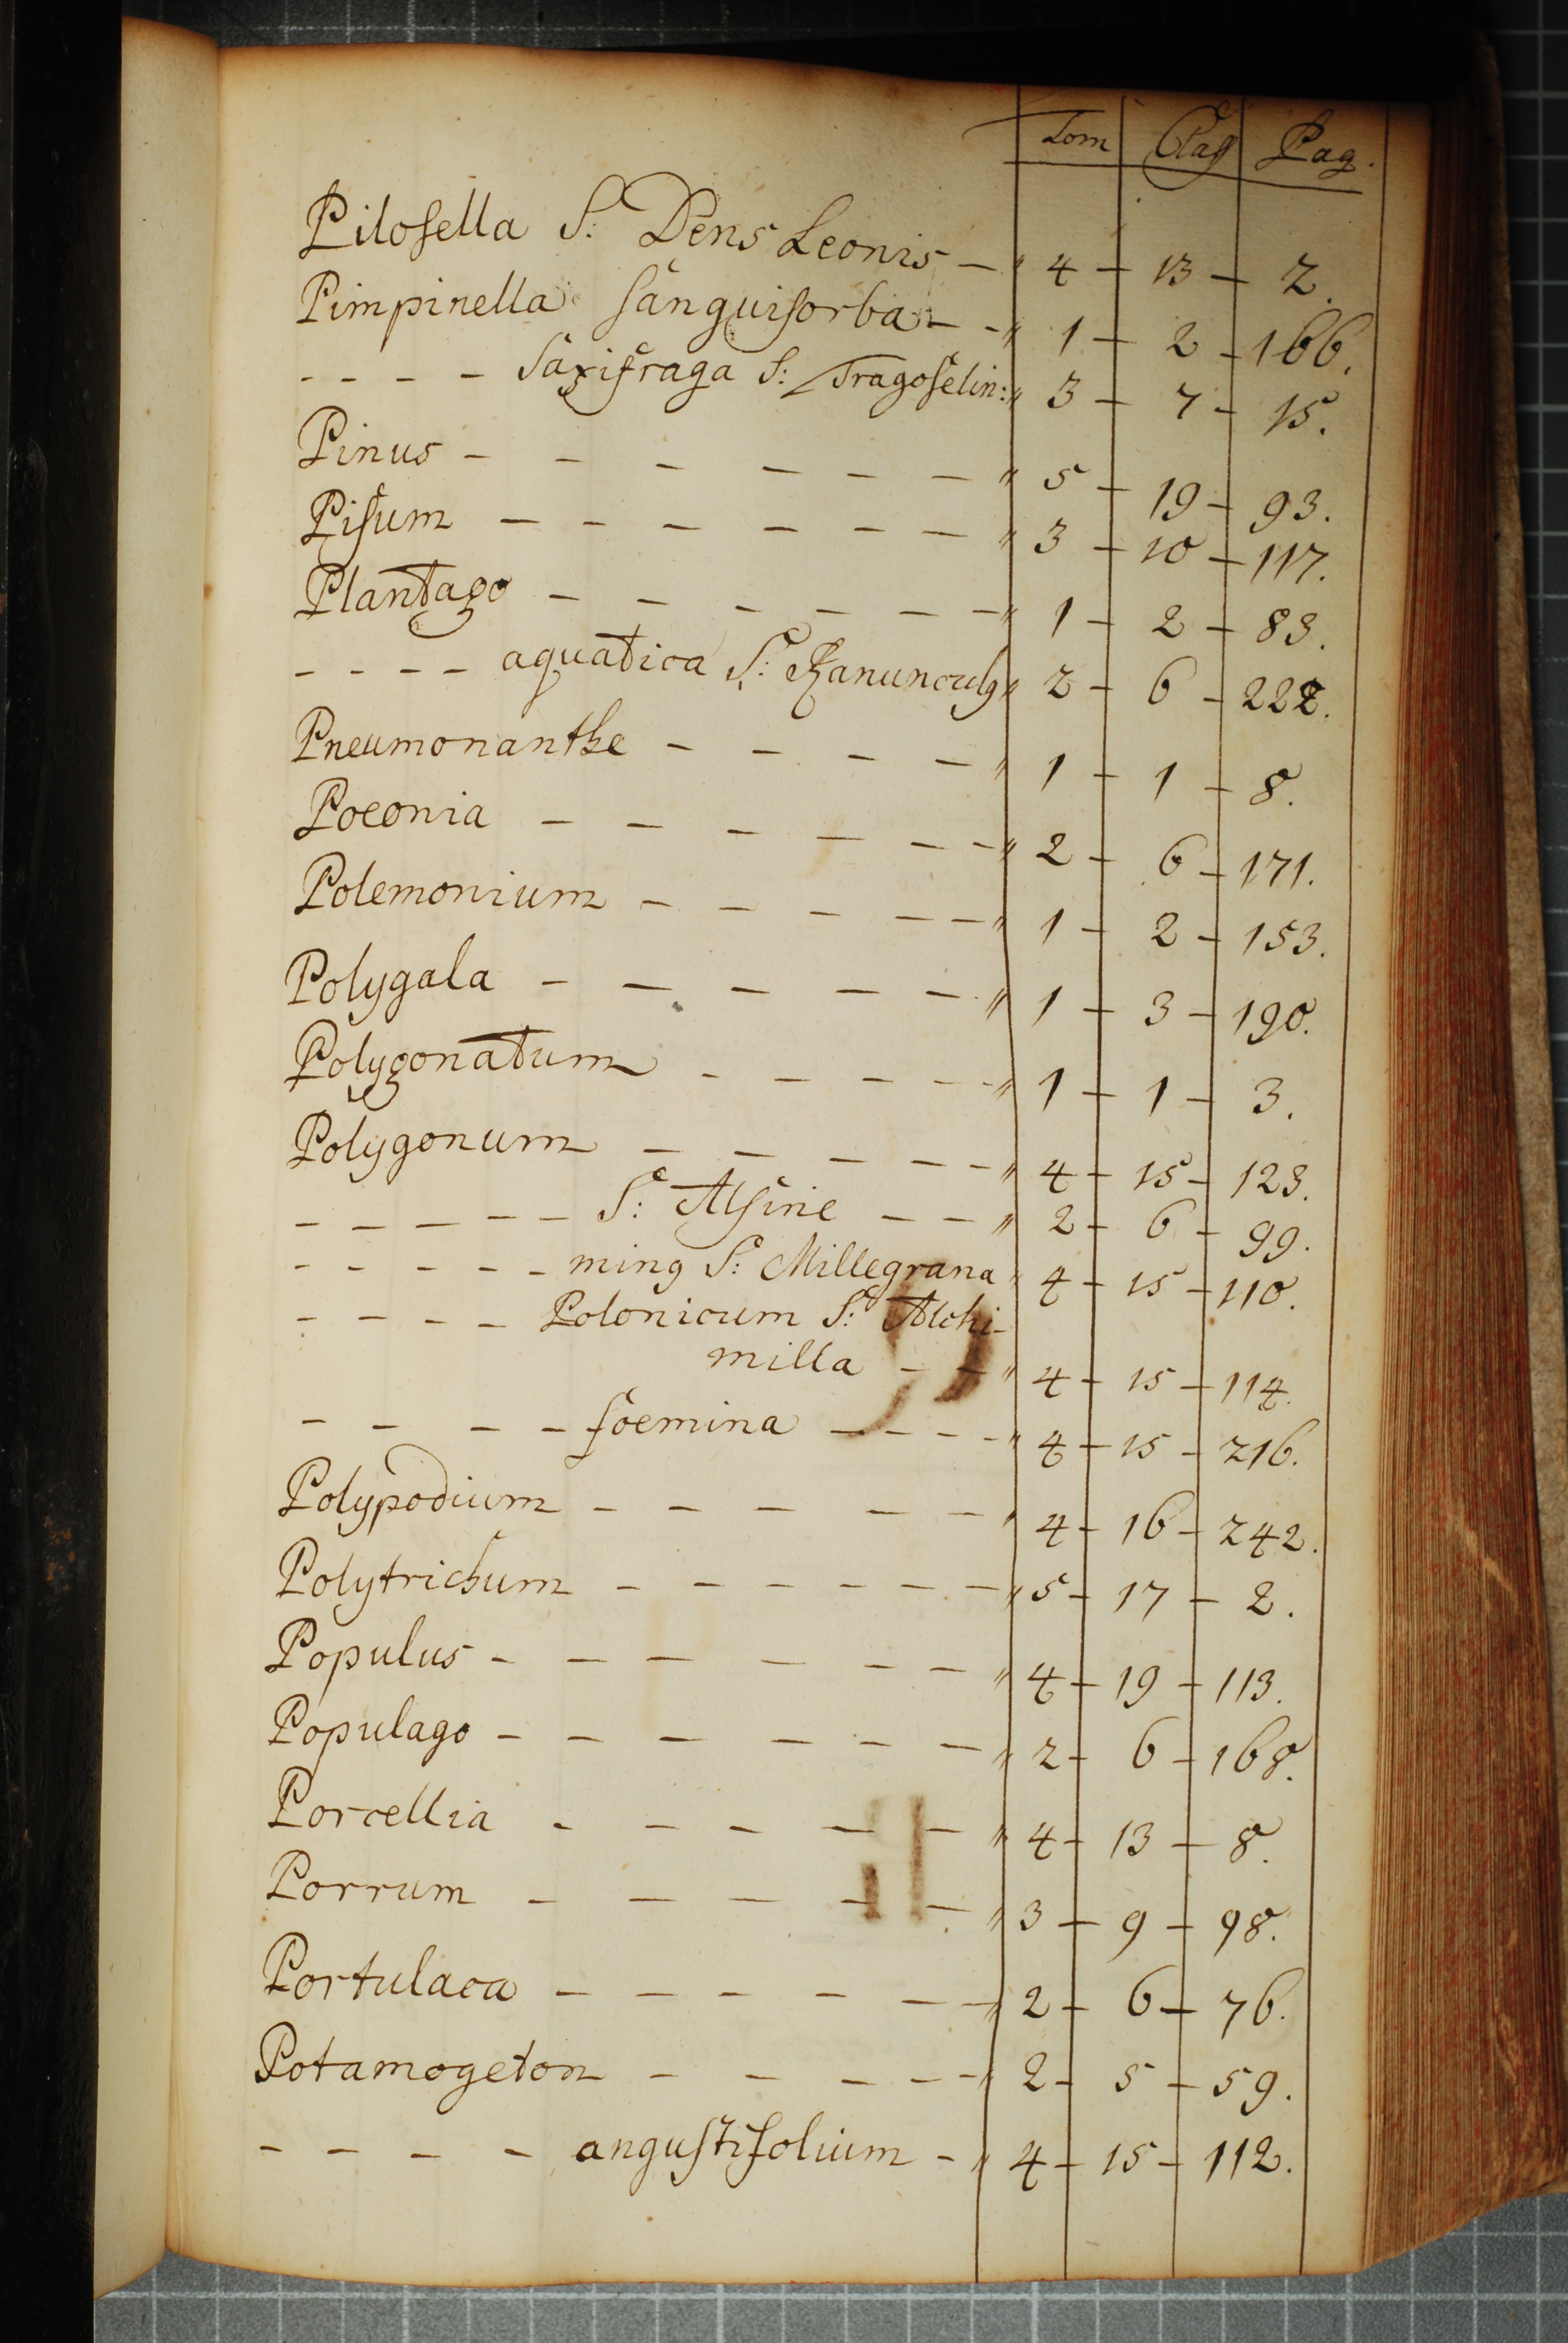 Tom Clas Pag.
Pilosella S: Dens Leonis — " 4 — 13 — 2.
Pimpinella sanguisorba — - " 1 — 2 — 166.
- - - - Saxifraga S: Tragoselin: " 3 — 7 — 15.
Pinus - - - - - - " 5 — 19 — 93.
Pisum - - - - - - " 3 — 10 — 117.
Plantago - - - - - - " 1 — 2 — 83.
- - - - aquatica S: Ranunculq " 2 — 6 — 222.
Pneumonanthe - - - - " 1 — 1 — 8.
Poeonia - - - - - - " 2 — 6 — 171.
Polemonium - - - - - " 1 — 2 — 153.
Polygala - - - - - " 1 — 3 — 190.
Polygonatum - - - - " 1 — 1 — 3.
Polygonum - - - - - " 4 — 15 — 123.
- - - - - S: Alsine - - " 2 — 6 — 99.
- - - - - minq S: Millegrana " 4 — 15 — 110.
- - - - Polonicum S: Alchi-
milla - - " 4 — 15 — 114.
- - - - foemina - - - - " 4 — 15 — 216.
Polypodium - - - - - " 4 — 16 — 242.
Polytrichum - - - - - " 5 — 17 — 2.
Populus - - - - - - " 4 — 19 — 113.
Populago - - - - - - " 2 — 6 — 168.
Porcellia - - - - - " 4 — 13 — 8.
Porrum - - - - - " 3 — 9 — 98.
Portulaca - - - - - - " 2 — 6 — 76.
Potamogeton - - - - - " 2 — 5 — 59.
- - - - angustifolium - " 4 — 15 — 112.